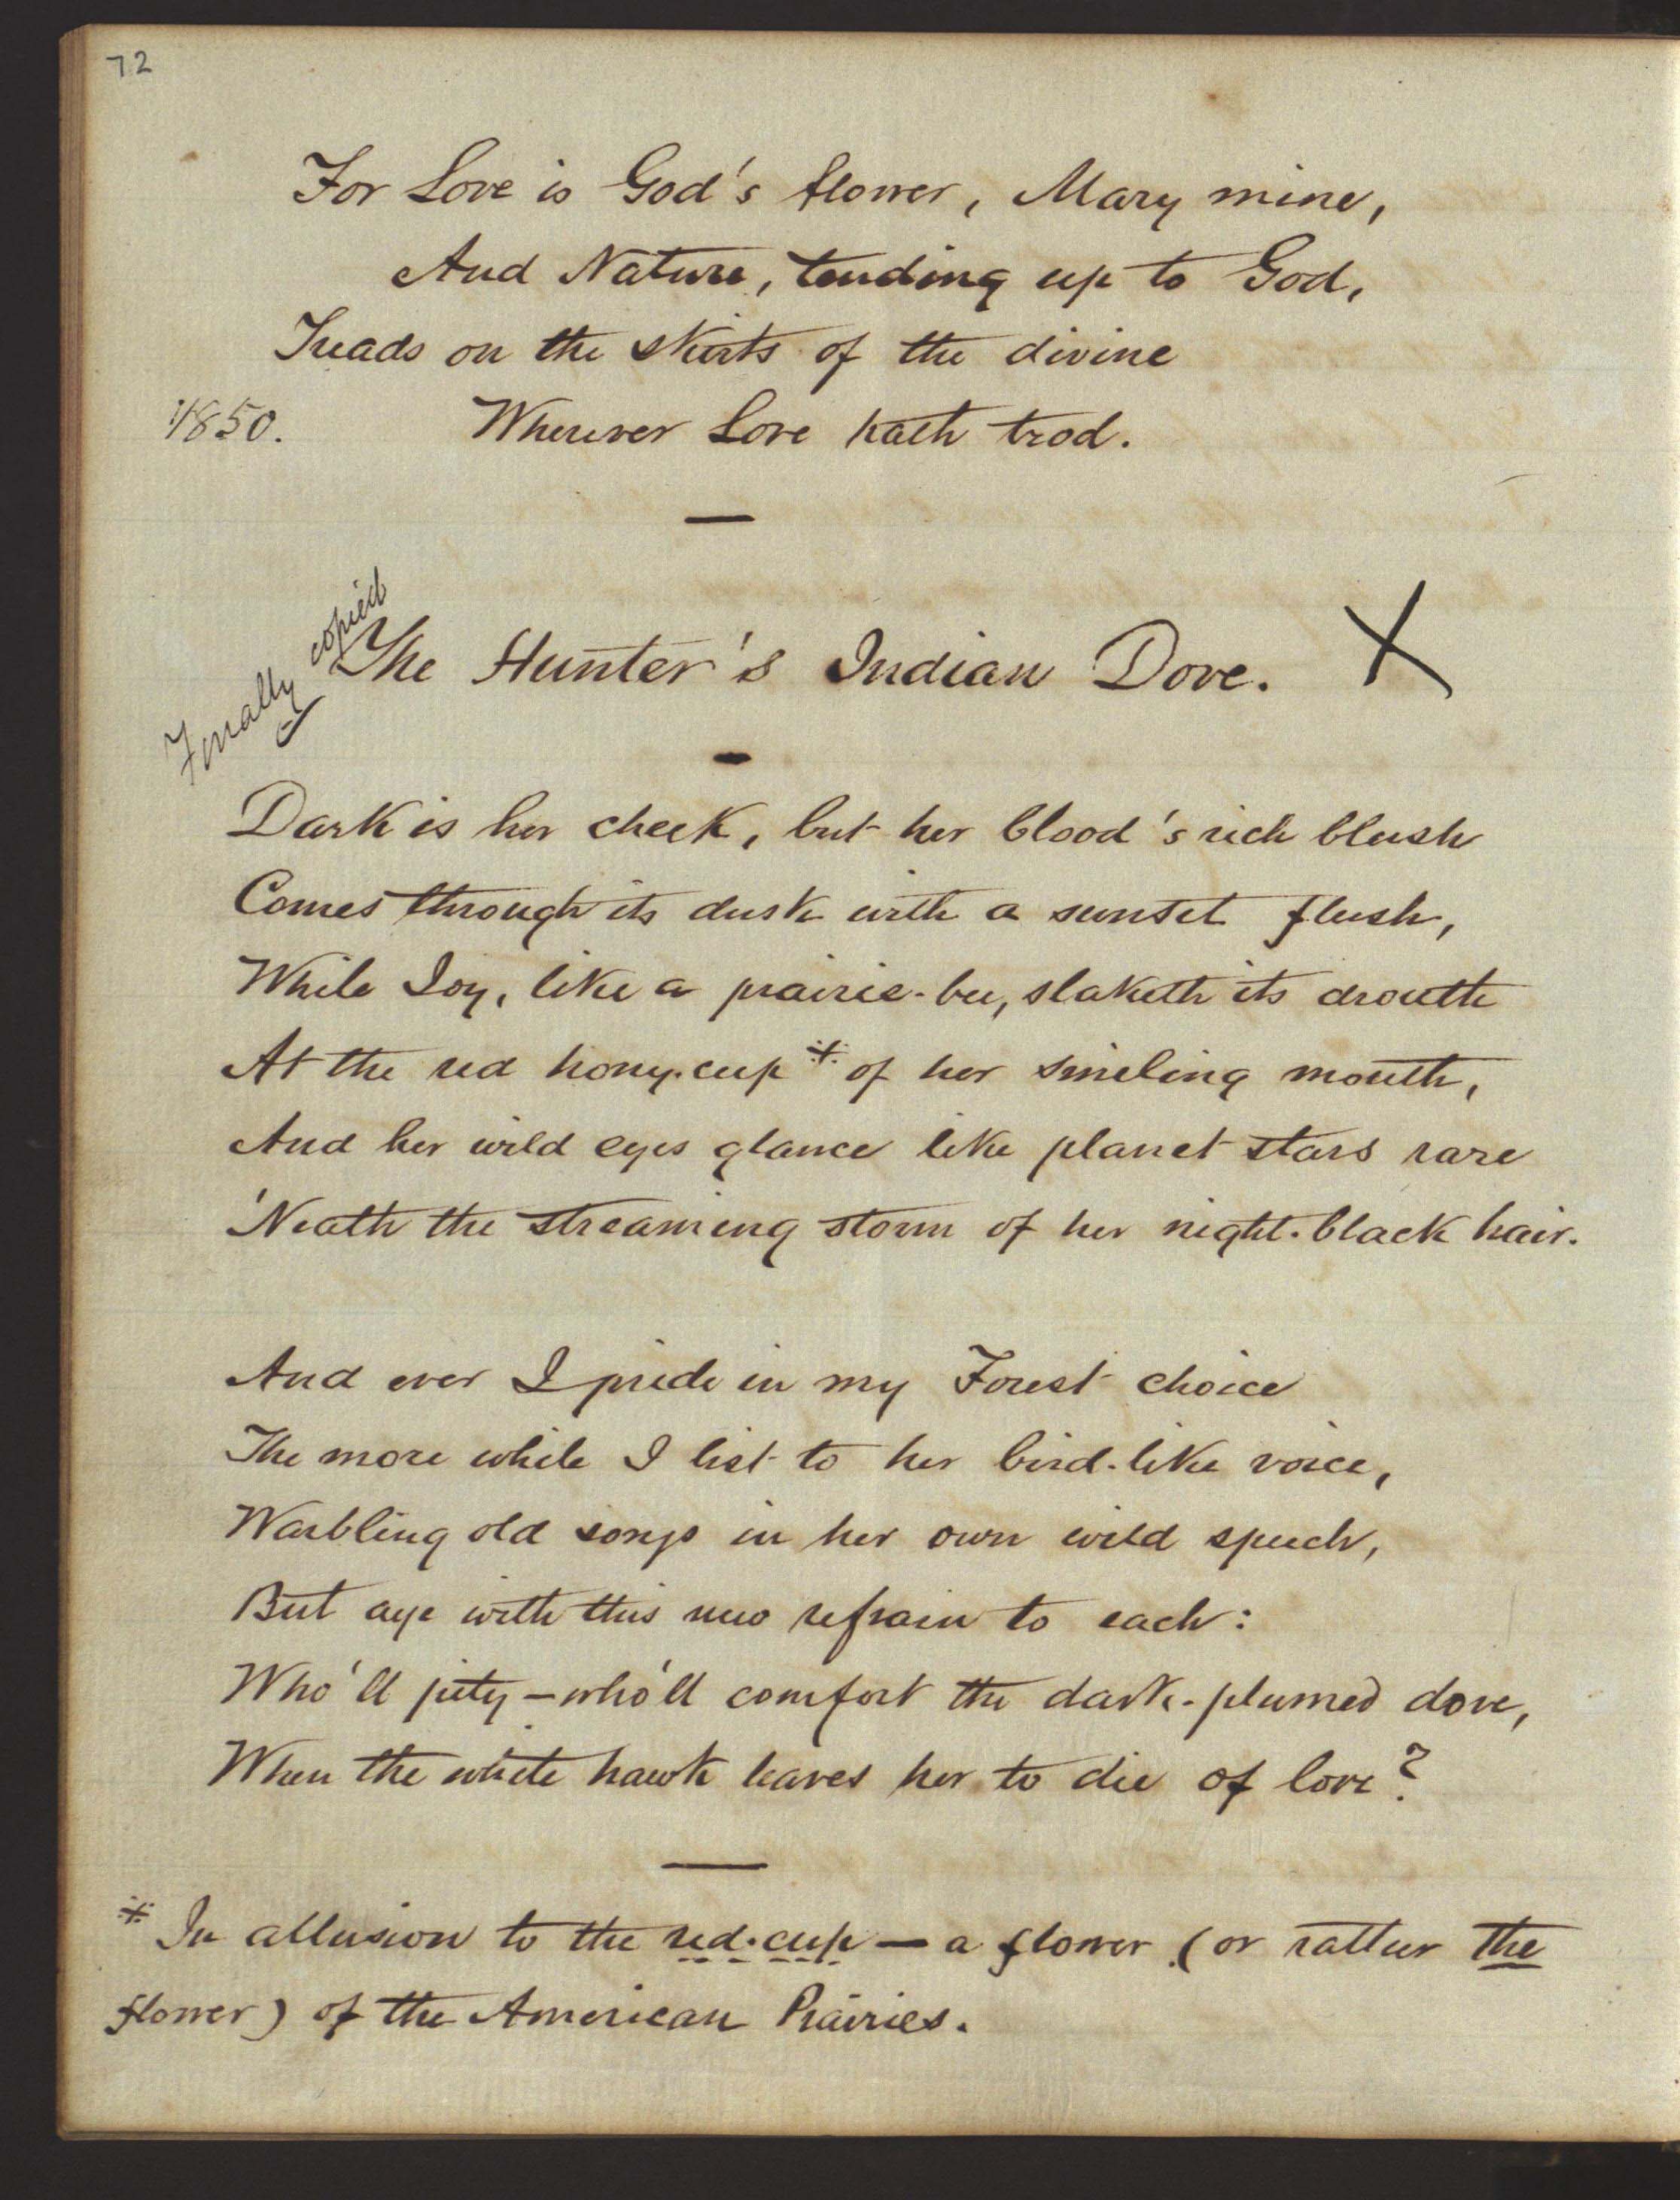 72
For Love is God's flower, Mary mine,
And Nature, tending up to God,
Treads on the skirts of the divine
1850. Wherever Love hath trod.
Finally copied
The Hunter's Indian Dove. X
Dark is her cheek, but her blood's rich blush
Comes through its dusk with a sunset flush,
While Joy, like a prairie-bee, slaketh its drouth
At the red honey-cup* of her smileing mouth,
And her wild eyes glance like planet stars rare
'Neath the streaming storm of her night-black hair.
And ever I pride in my Forest choice
The more while I list to her bird-like voice,
Warbling old songs in her own wild speech,
But aye with this new refrain to each:
Who'll pity—who'll comfort the dark-plumed dove,
When the white hawk leaves her to die of love?
* In allusion to the red-cup — a flower (or rather the
flower) of the American Prairies.